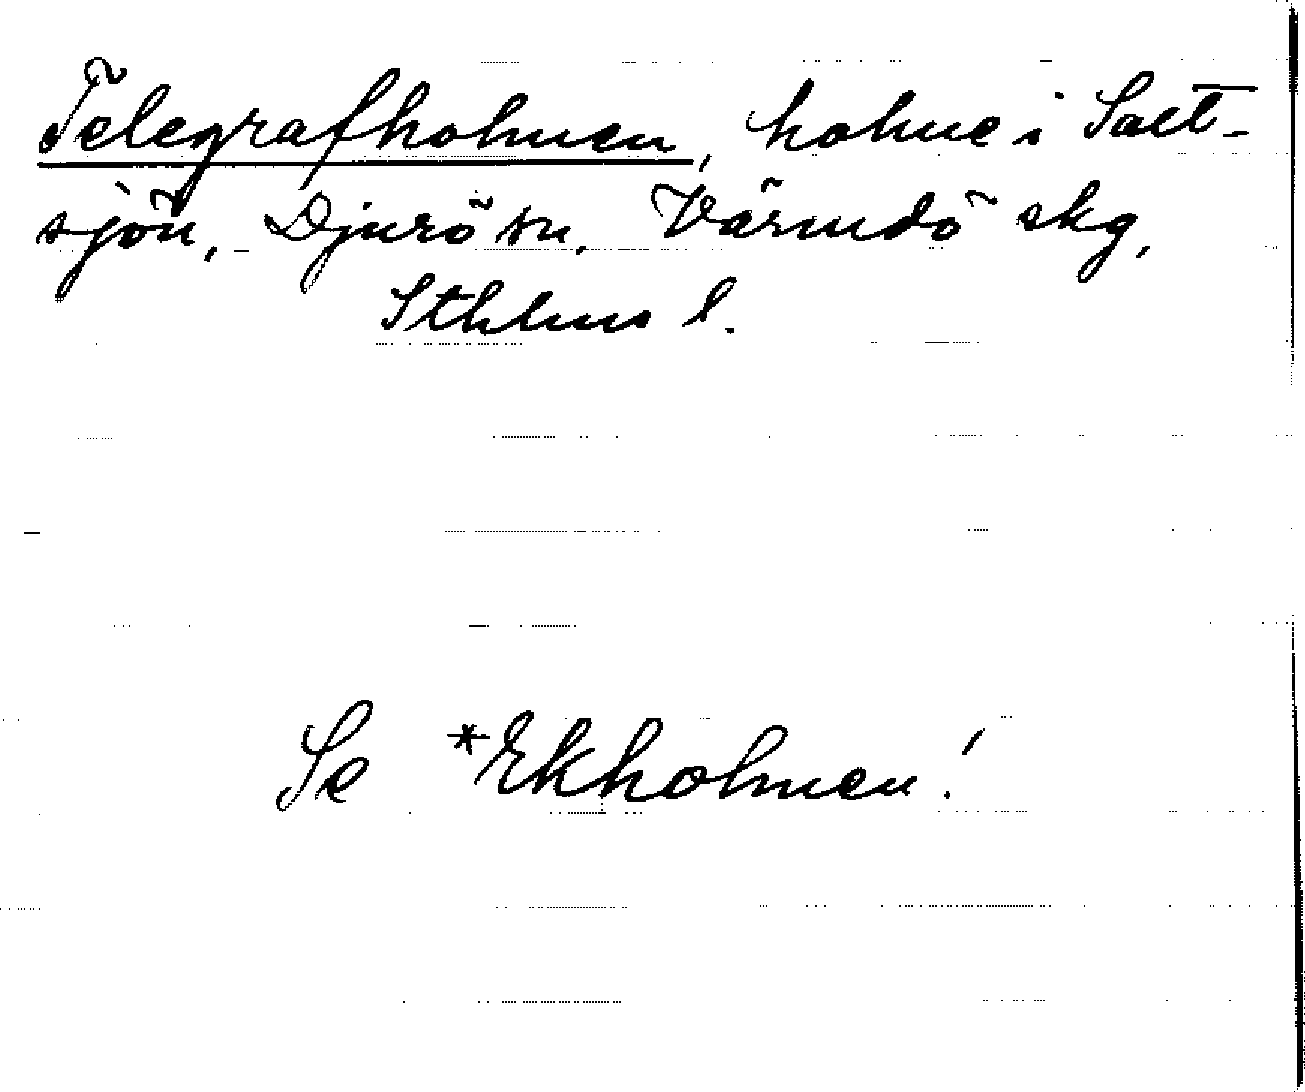 Telegrafholmen, holme i Salt-
sjön, Djurö sn, Värmdö skg,
Sthlms l.
Se *Ekholmen!